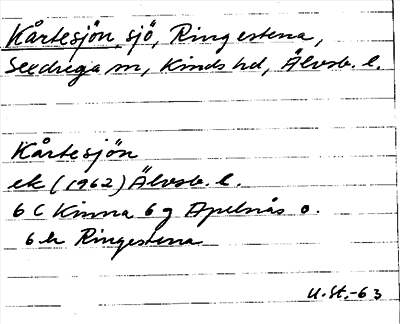 Kårtesjön, sjö, Ringestena,
Sexdrega sn, Kinds hd, Älvsb. l.
Kårtesjön
ek (1962) Älvsb. l.
6 C Kinna 6 g Apelnäs o.
6 h Ringestena
U. St. -63